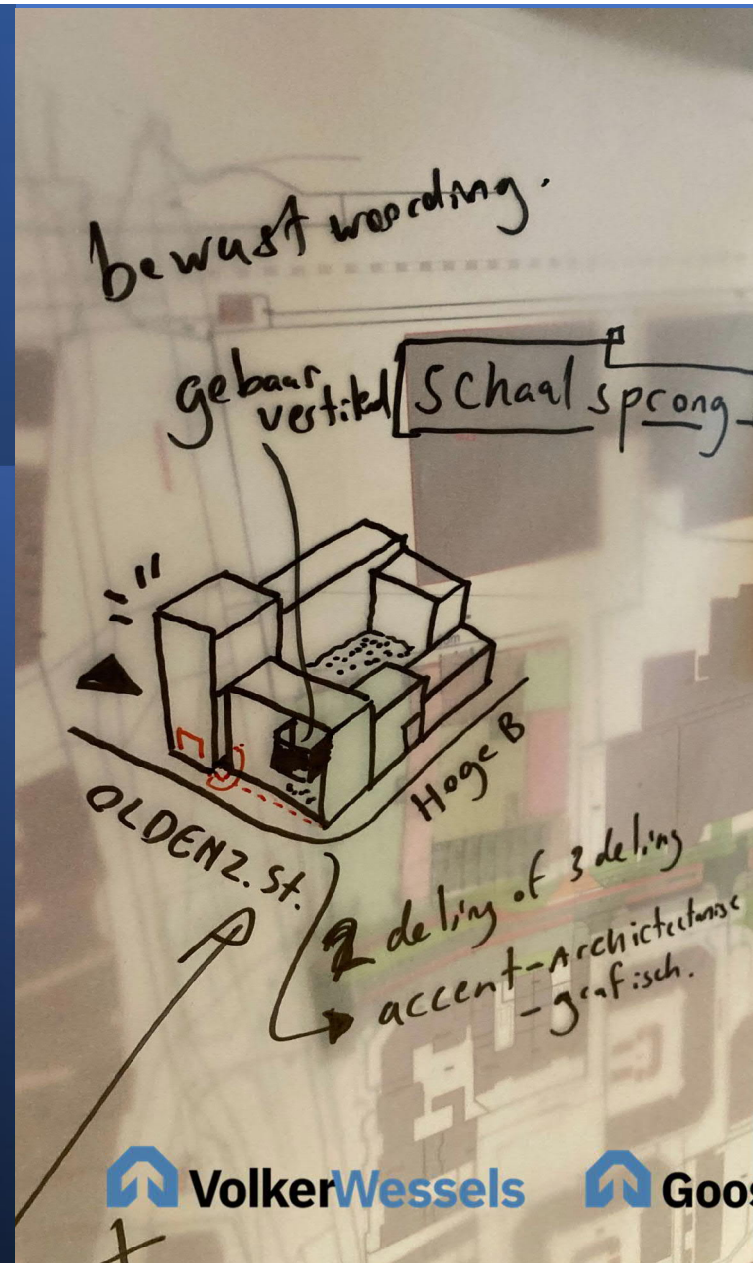 bewust wording.
gebaar
vertikaal
Schaalsprong
OLDENZ. St.
Hoge B
2 deling of 3 deling
accent-Architectonisc
- grafisch.
VolkerWessels
Goos